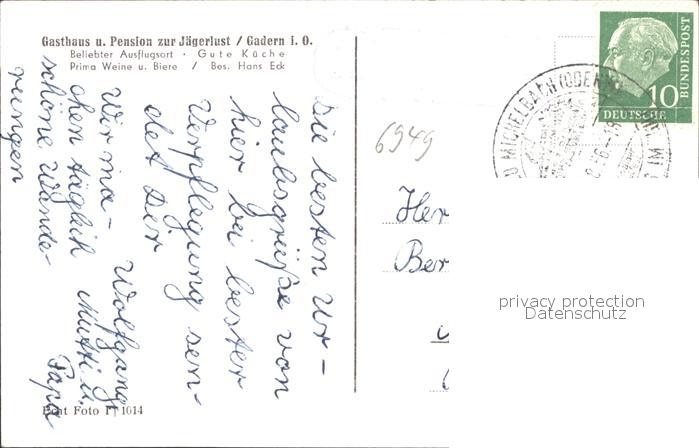 Gasthaus u. Pension zur Jägerlust / Gadern i. O.
Beliebter Ausflugsort · Gute Küche
Prima Weine u. Biere / Bes. Hans Eck
Die besten Ur-
laubsgrüße von
hier bei bester
Verpflegung sen-
det Dir
Wolfgang
Mutti u.
Papa
Wir ma-
chen täglich
schöne Wande-
rungen
Echt Foto
1014
6949
Her
Ber
10
DEUTSCHE
BUNDESPOST
MICHELBACH (ODENW)
privacy protection
Datenschutz